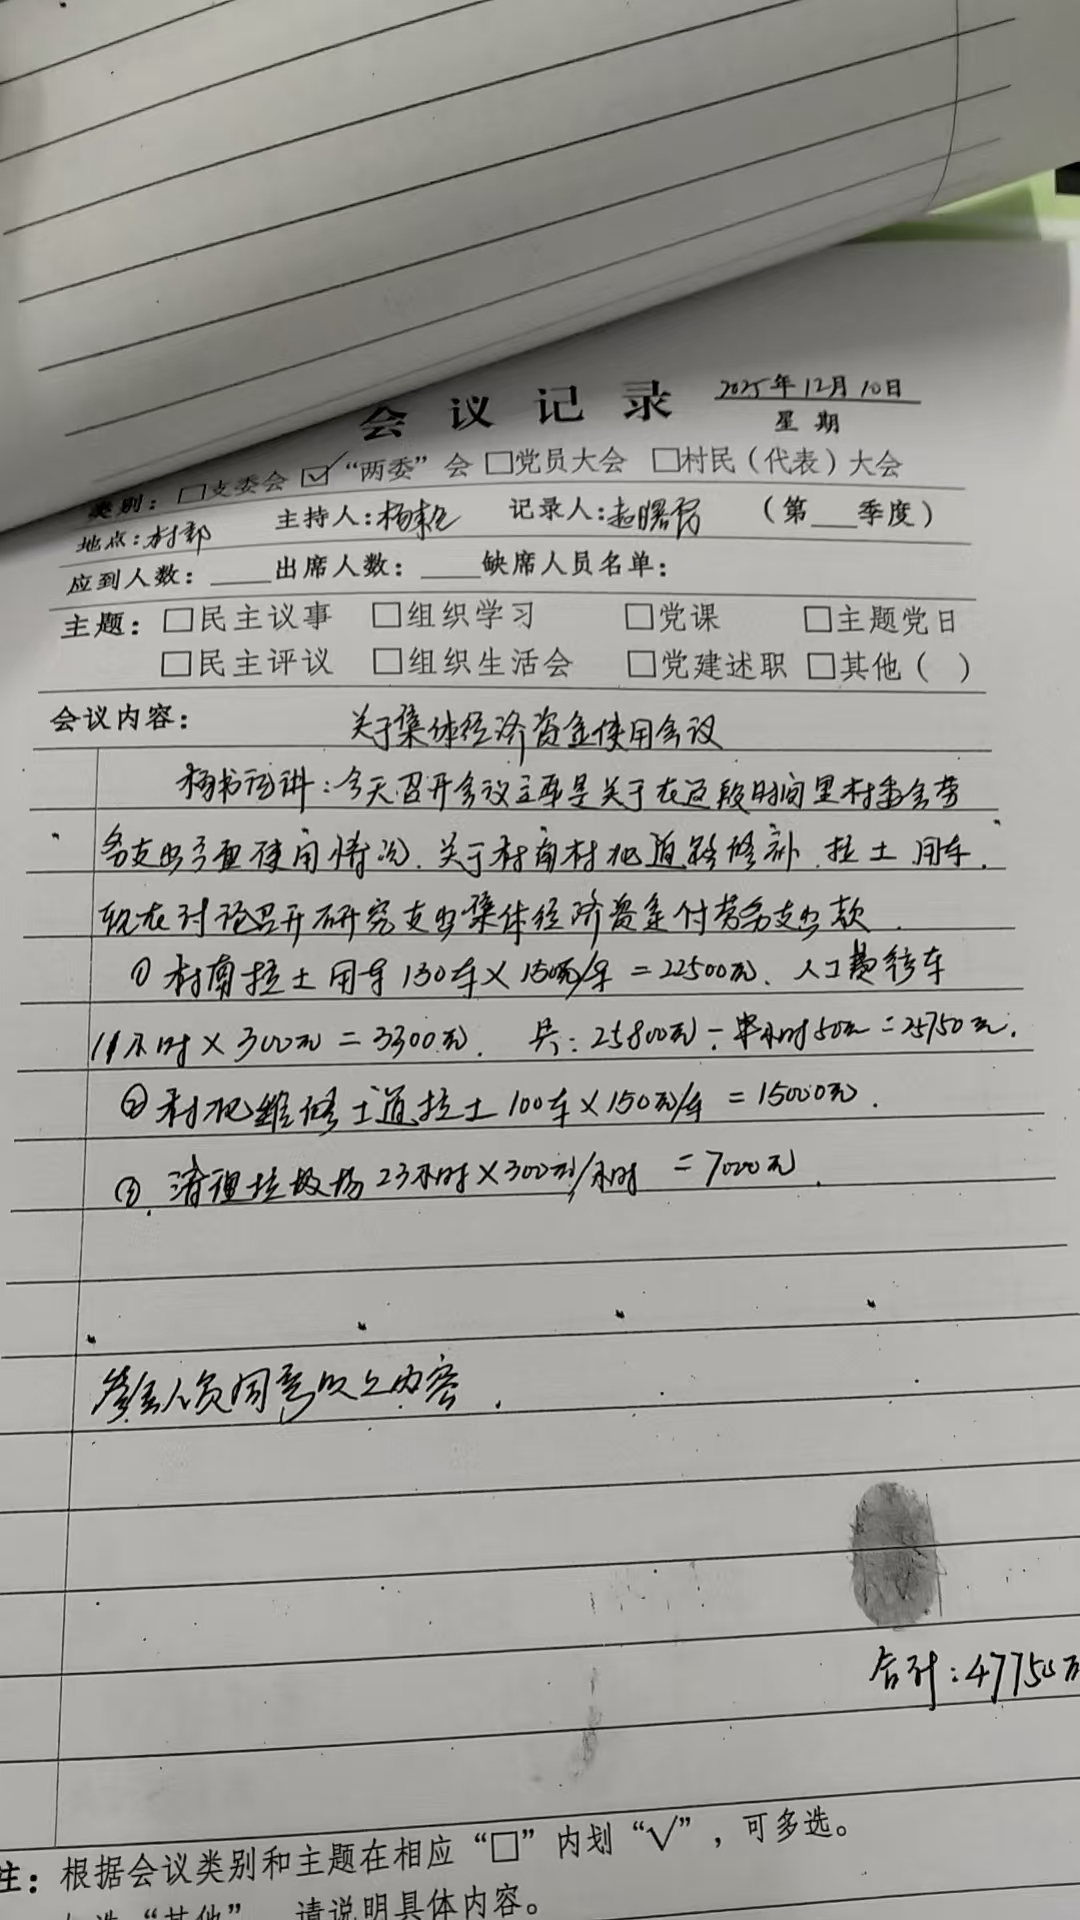 会议记录 2025年12月10日
星期
类别：□支委会 ☑“两委”会 □党员大会 □村民（代表）大会
地点：村部 主持人：杨 记录人：赵曙 （第___季度）
应到人数：____出席人数：____缺席人员名单：
主题：□民主议事 □组织学习 □党课 □主题党日
□民主评议 □组织生活会 □党建述职 □其他（ ）
会议内容： 关于集体经济资金使用会议
杨书记讲：今天召开会议主要是关于在这段时间里村委会劳
务支出 使用情况．关于村南村北道路修补．拉土 用车．
现在讨论召开研究支出集体经济资金付劳务支出款．
① 村南拉土用车150车×150元/车＝22500元．人工费 车
11小时×300元＝3300元． 共：25800元－半小时50元＝25750元．
② 村北维修土道拉土100车×150元/车＝15000元．
③．清理垃圾场23小时×300元/小时 ＝7000元．
参会人员同意以上内容．
合计：47750元
注：根据会议类别和主题在相应“□”内划“√”，可多选。
“其他” 请说明具体内容。